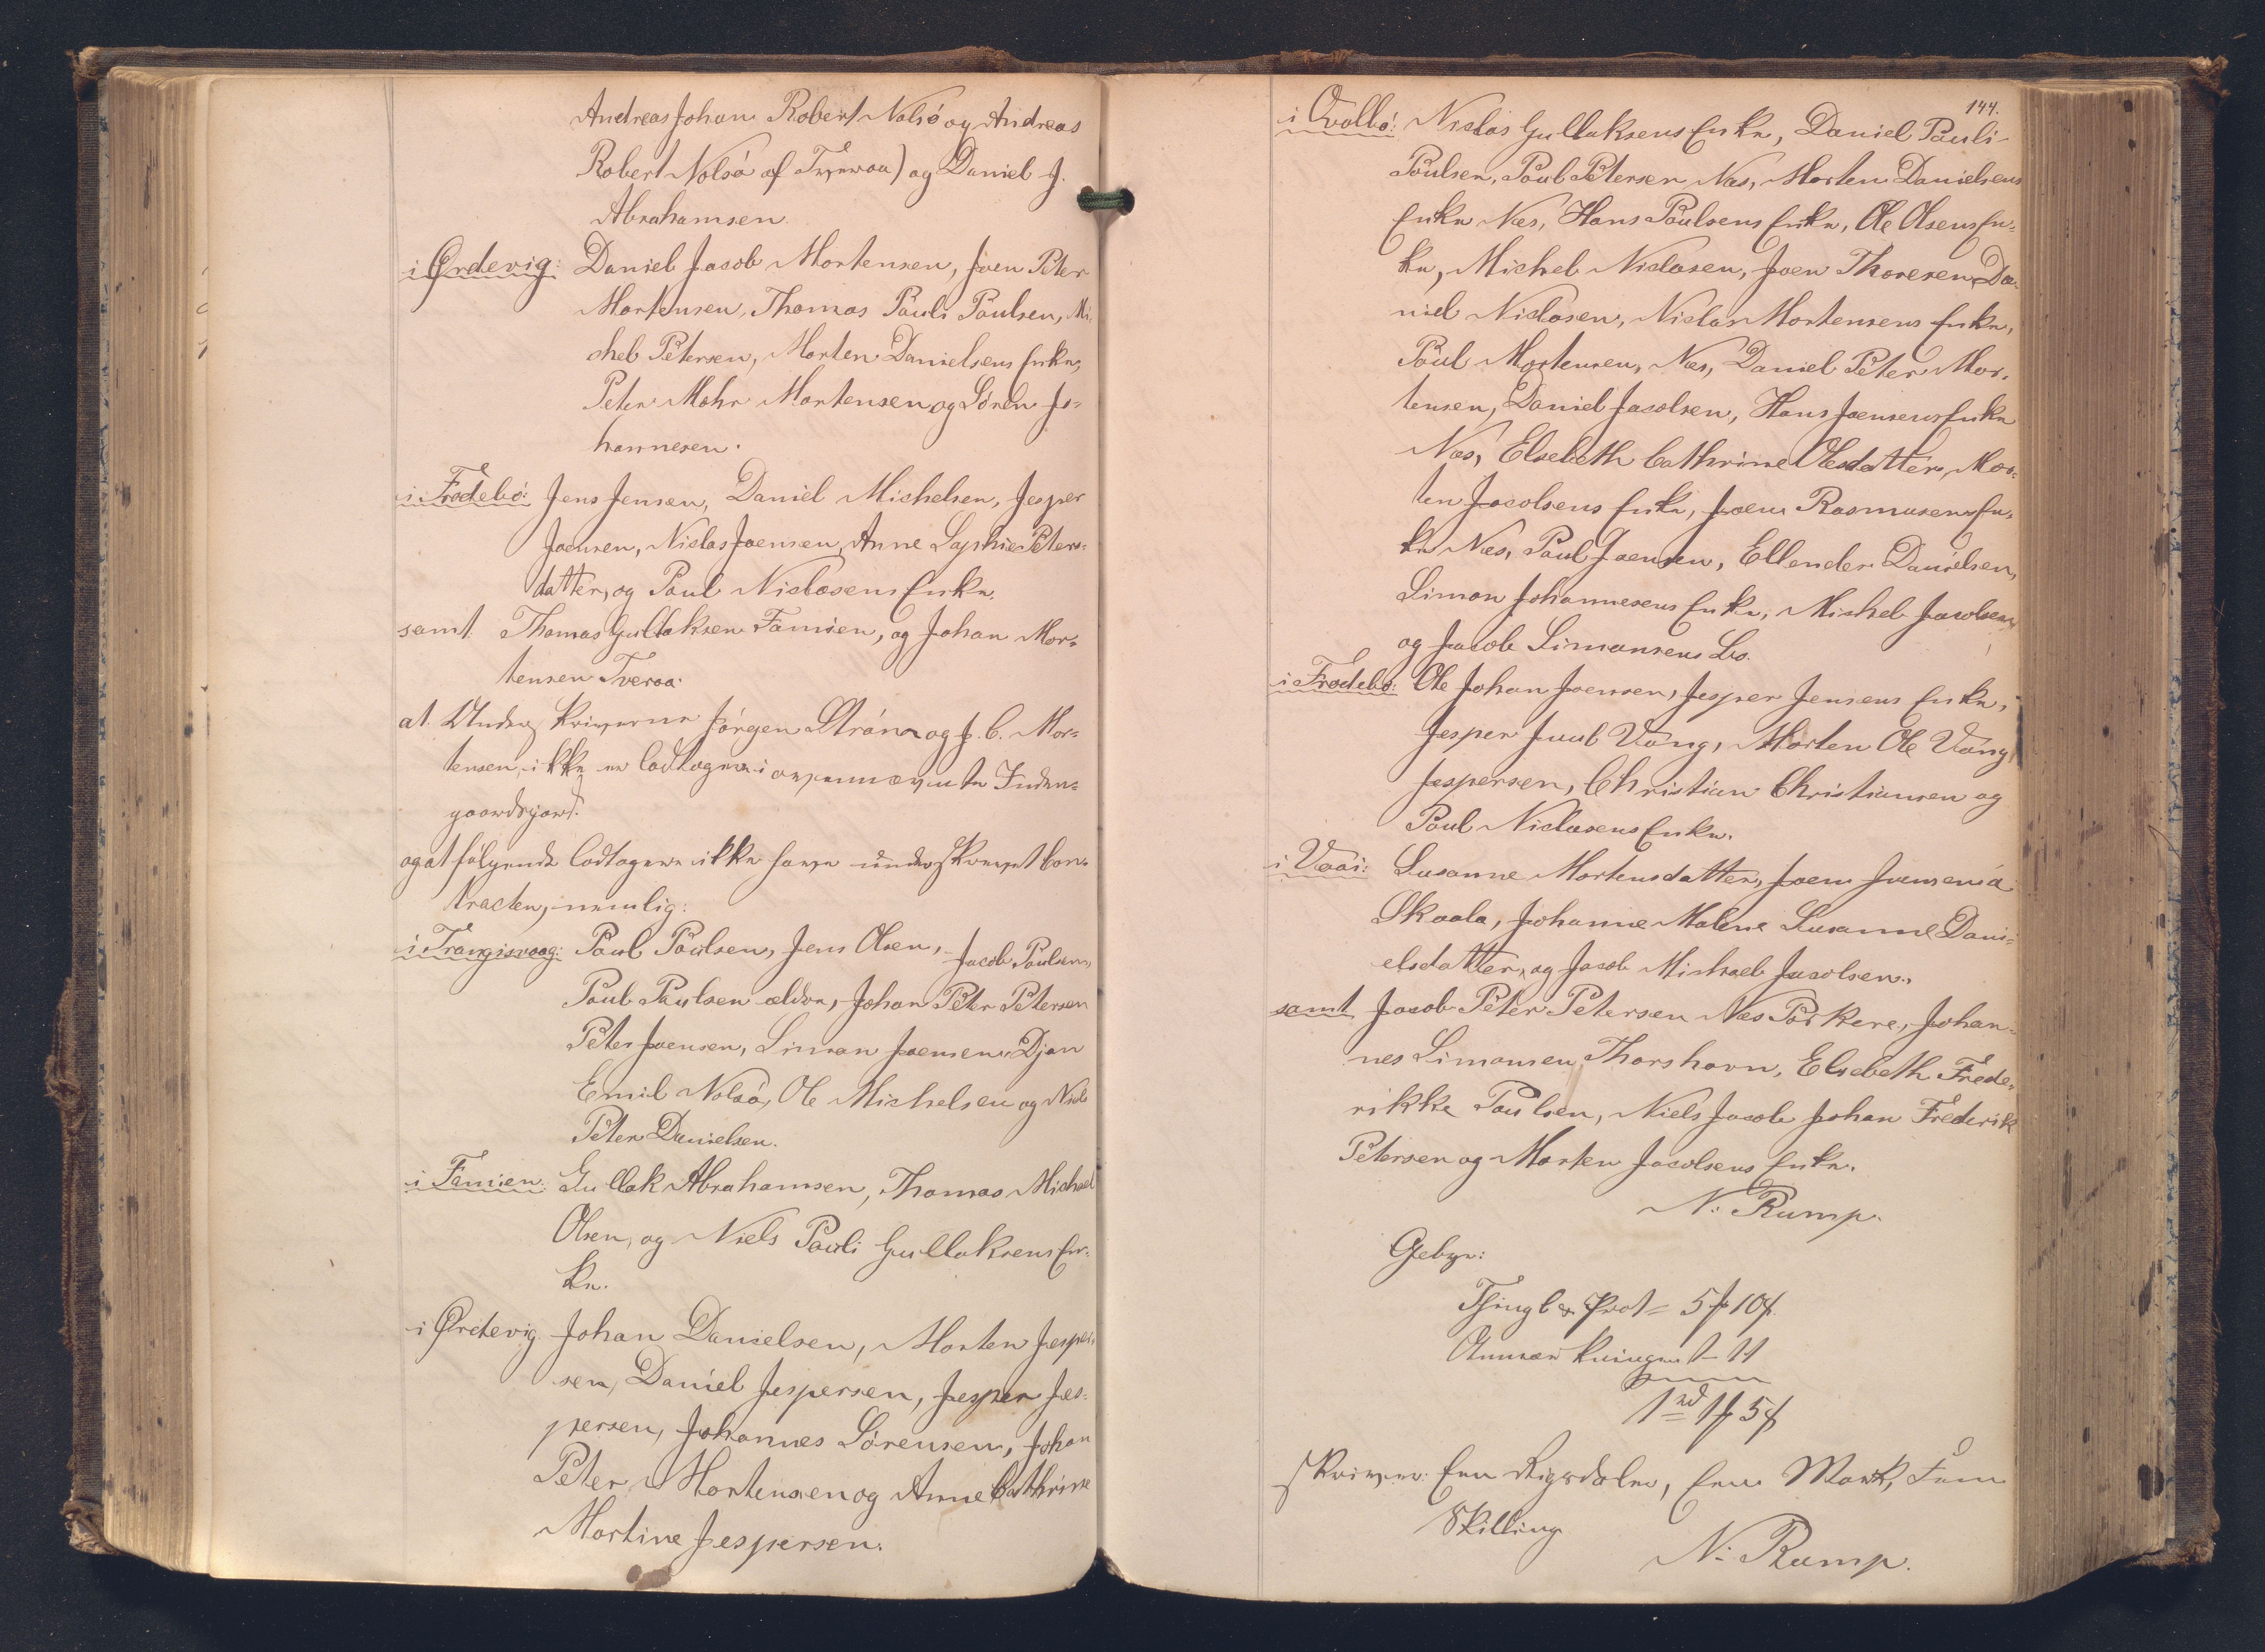 Andreas Johan Robert Nolsö og Andreas
Robert Nolsö af Tveraa) og Daniel J.
Abrahamsen.
i Ördevig: Daniel Jacob Mortensen, Joen Peter
Mortensen, Thomas Pauli Paulsen, Mi-
chel Petersen, Morten Danielsens Enke,
Peter Mohr Mortensen og Sören Jo-
hannesen.
i Frodebö: Jens Jensen, Daniel Michelsen, Jesper
Joensen, Niclas Joensen, Anne Sophie Peters-
datter, og Poul Niclasens Enke.
samt Thomas Gullaksen Famien, og Johan Mor-
tensen Tveraa.
at Underskriverne Jörgen Ström og J. C. Mor-
tensen ikke er Lodtagere i Inden-
gaardsjord.
og at fölgende Lodtagere ikke have underskrevet Con-
tracten, nemlig:
i Trangisvaag: Paul Poulsen, Jens Olsen, Jacob Poulsen,
Poul Paulsen ældre, Johan Peter Petersen
Peter Joensen, Simon Joensen, Djon
Emil Nolsö, Ole Michelsen og Niels
Peter Danielsen.
i Famien: Gullak Abrahamsen, Thomas Michael
Olsen, og Niels Pauli Gullaksens En-
ke.
i Ördevig. Johan Danielsen, Morten Jesper-
sen, Daniel Jespersen, Jesper Jes-
persen, Johannes Sörensen, Johan
Peter Mortensen og Anne Cathrine
Martine Jespersen.
144.
i Qvalbö: Niclas Gullaksens Enke, Daniel Pauli
Poulsen, Poul Petersen Næs, Morten Danielsens
Enke Næs, Hans Poulsens Enke, Ole Olsens En-
ke, Michel Niclasen, Joen Thoresen, Da-
niel Niclasen, Niclas Mortensens Enke,
Poul Mortensen, Næs, Daniel Peter Mor-
tensen, Daniel Jacobsen, Hans Joensens Enke
Næs, Elsebeth Cathrine Olesdatter, Mor-
ten Jacobsens Enke, Joen Rasmusens En-
ke Næs, Poul Joensen, Ellender Danielsen,
Simon Johannesens Enke, Michel Jacobsen
og Jacob Simonsens Bo.
i Frodebö: Ole Johan Joensen, Jesper Jensens Enke,
Jesper Juul Vang, Morten Ole Vang
Jespersen, Christian Christiansen og
Poul Niclasens Enke.
i Vaai: Susanne Mortensdatter, Joen Joensen á
Skaala, Johanne Malene Susanne Dani-
elsdatter, og Jacob Michael Jacobsen.
samt Jacob Peter Petersen Næs Porkere, Johan-
nes Simonsen Thorshavn, Elsebeth Frede-
rikke Poulsen, Niels Jacob Johan Frederik
Petersen og Morten Jacobsens Enke.
N. Rump.
Gebyr:
Thingl & Prot = 5 ₰ 10 ß.
Anmærkningen 1 - 11
1 rd 1 ₰ 5 ß
skriver: Een Rigsdaler, Een Mark, Fem
Skilling
N. Rump.